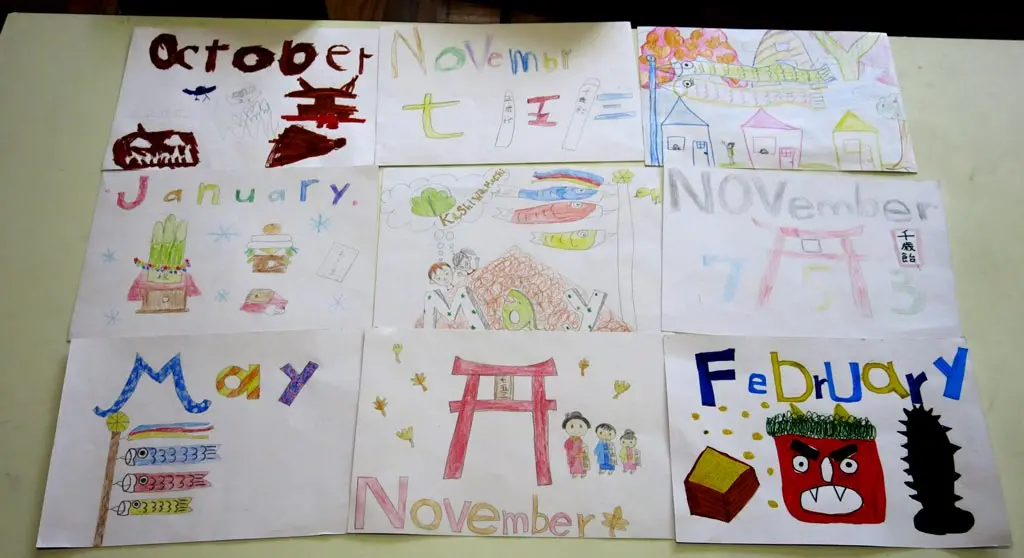 October
Novembr
七五三
January.
Kashiwamochi
May
November
千歳飴
7 5 3
May
七五三
November
February